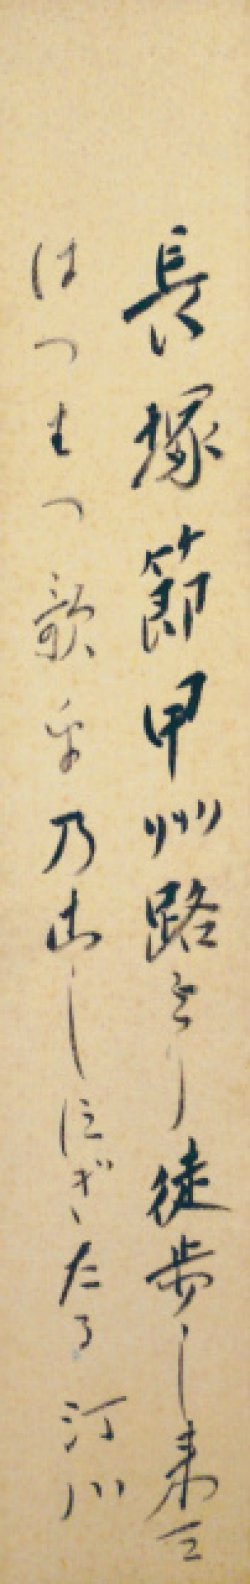 長塚節甲州路より徒歩し来て
はつはつ歌乎乃こしぎたる 汀川